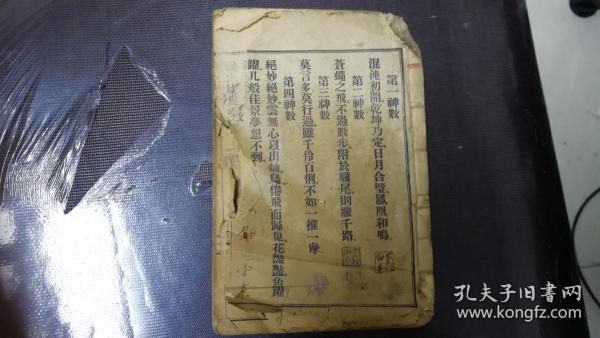 第一神數
混沌初開乾坤乃定日月合璧鳳凰和鳴
第二神數
蒼蠅之飛不過數步附於驥尾則騰千路
第三神數
莫言多莫行過雖千伶百俐不如一推一摩
第四神數
絕妙絕妙雲無心以出岫鳥倦飛而歸巢花艷艷魚躍
躍几般佳景夢想不到
孔夫子旧书网